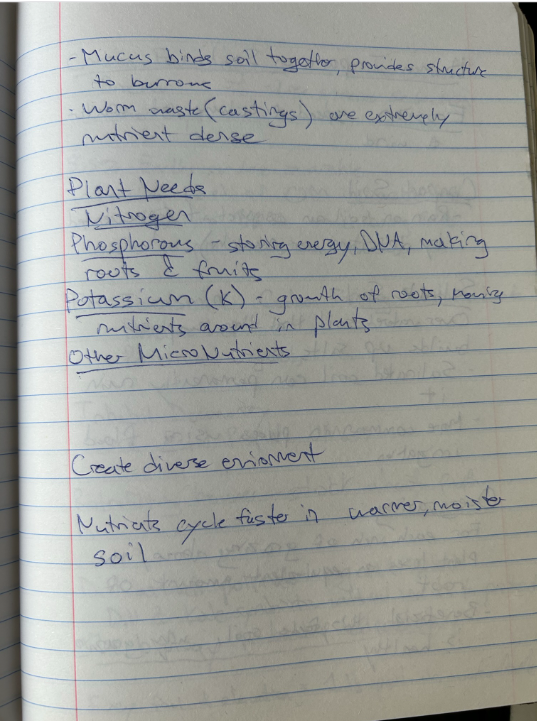 - Mucus binds soil together, provides structure
to burrows
- Worm waste (castings) are extremely
nutrient dense
Plant Needs
Nitrogen
Phosphorous - storing energy, DNA, making
roots & fruits
Potassium (K) - growth of roots, moving
nutrients around in plants
Other Micro Nutrients
Create diverse enviorment
Nutrients cycle faster in warmer, moister
soil